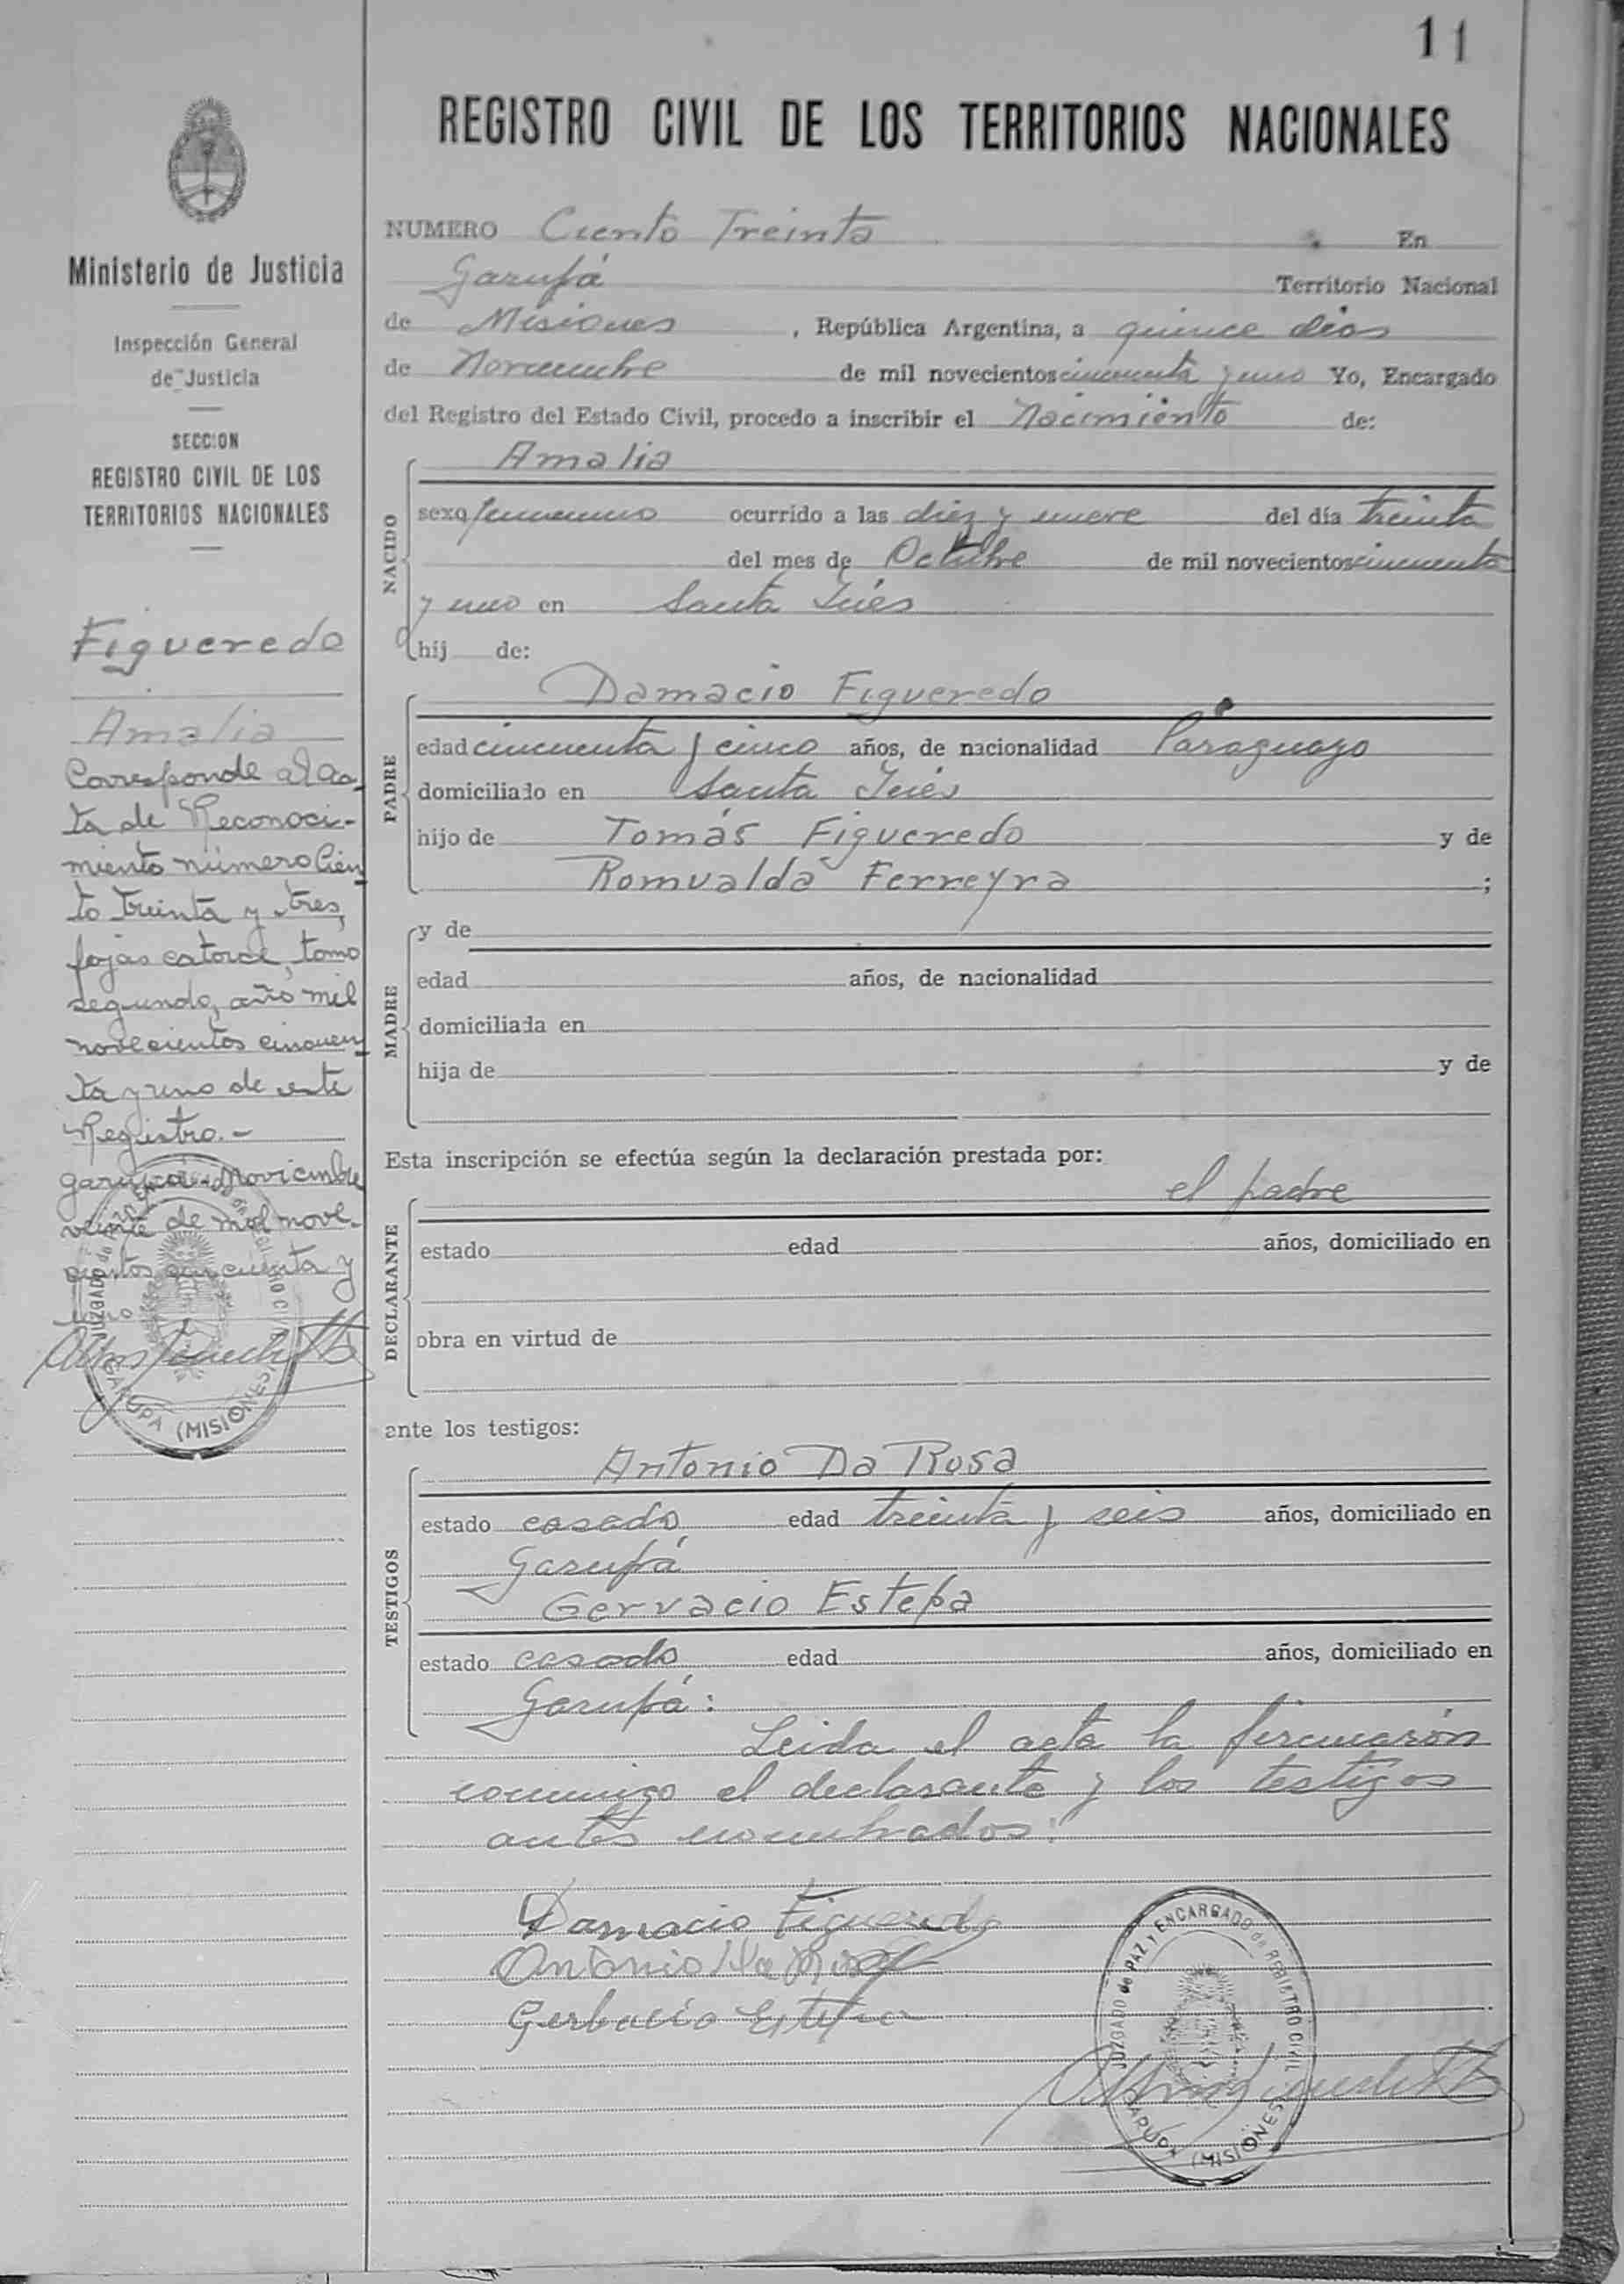 11
REGISTRO CIVIL DE LOS TERRITORIOS NACIONALES
Ministerio de Justicia
Inspección General
de Justicia
SECCION
REGISTRO CIVIL DE LOS
TERRITORIOS NACIONALES
Figueredo
Amalia
Corresponde al ac-
ta de Reconoci-
miento número Cien
to treinta y tres,
fojas catorce, tomo
segundo, año mil
novecientos cincuen
ta y uno de este
Registro.-
Garupá - Noviembre
veinte de mil nove-
cientos cincuenta y
uno
NUMERO Ciento Treinta En
Garupá Territorio Nacional
de Misiones, República Argentina, a quince dias
de Noviembre de mil novecientos cincuenta y uno Yo, Encargado
del Registro del Estado Civil, procedo a inscribir el Nacimiento de:
NACIDO
Amalia
sexo femenino ocurrido a las diez y nueve del día treinta
del mes de Octubre de mil novecientos cincuenta
y uno en Santa Inés
hij de:
PADRE
Damacio Figueredo
edad cincuenta y cinco años, de nacionalidad Paraguayo
domiciliado en Santa Inés
hijo de Tomás Figueredo y de
Romualda Ferreyra ;
MADRE
y de
edad años, de nacionalidad
domiciliada en
hija de y de
Esta inscripción se efectúa según la declaración prestada por:
DECLARANTE
el padre
estado edad años, domiciliado en
obra en virtud de
ante los testigos:
TESTIGOS
Antonio Da Rosa
estado casado edad treinta y seis años, domiciliado en
Garupá
Gervacio Estepa
estado casado edad años, domiciliado en
Garupá:
Leida el acta la firmarón
conmigo el declarante y los testigos
antes nombrados:
Damacio Figueredo
Antonio Da Rosa
Gerbacio Estepa
JUZGADO de PAZ y ENCARGADO de REGISTRO CIVIL
GARUPA (MISIONES)